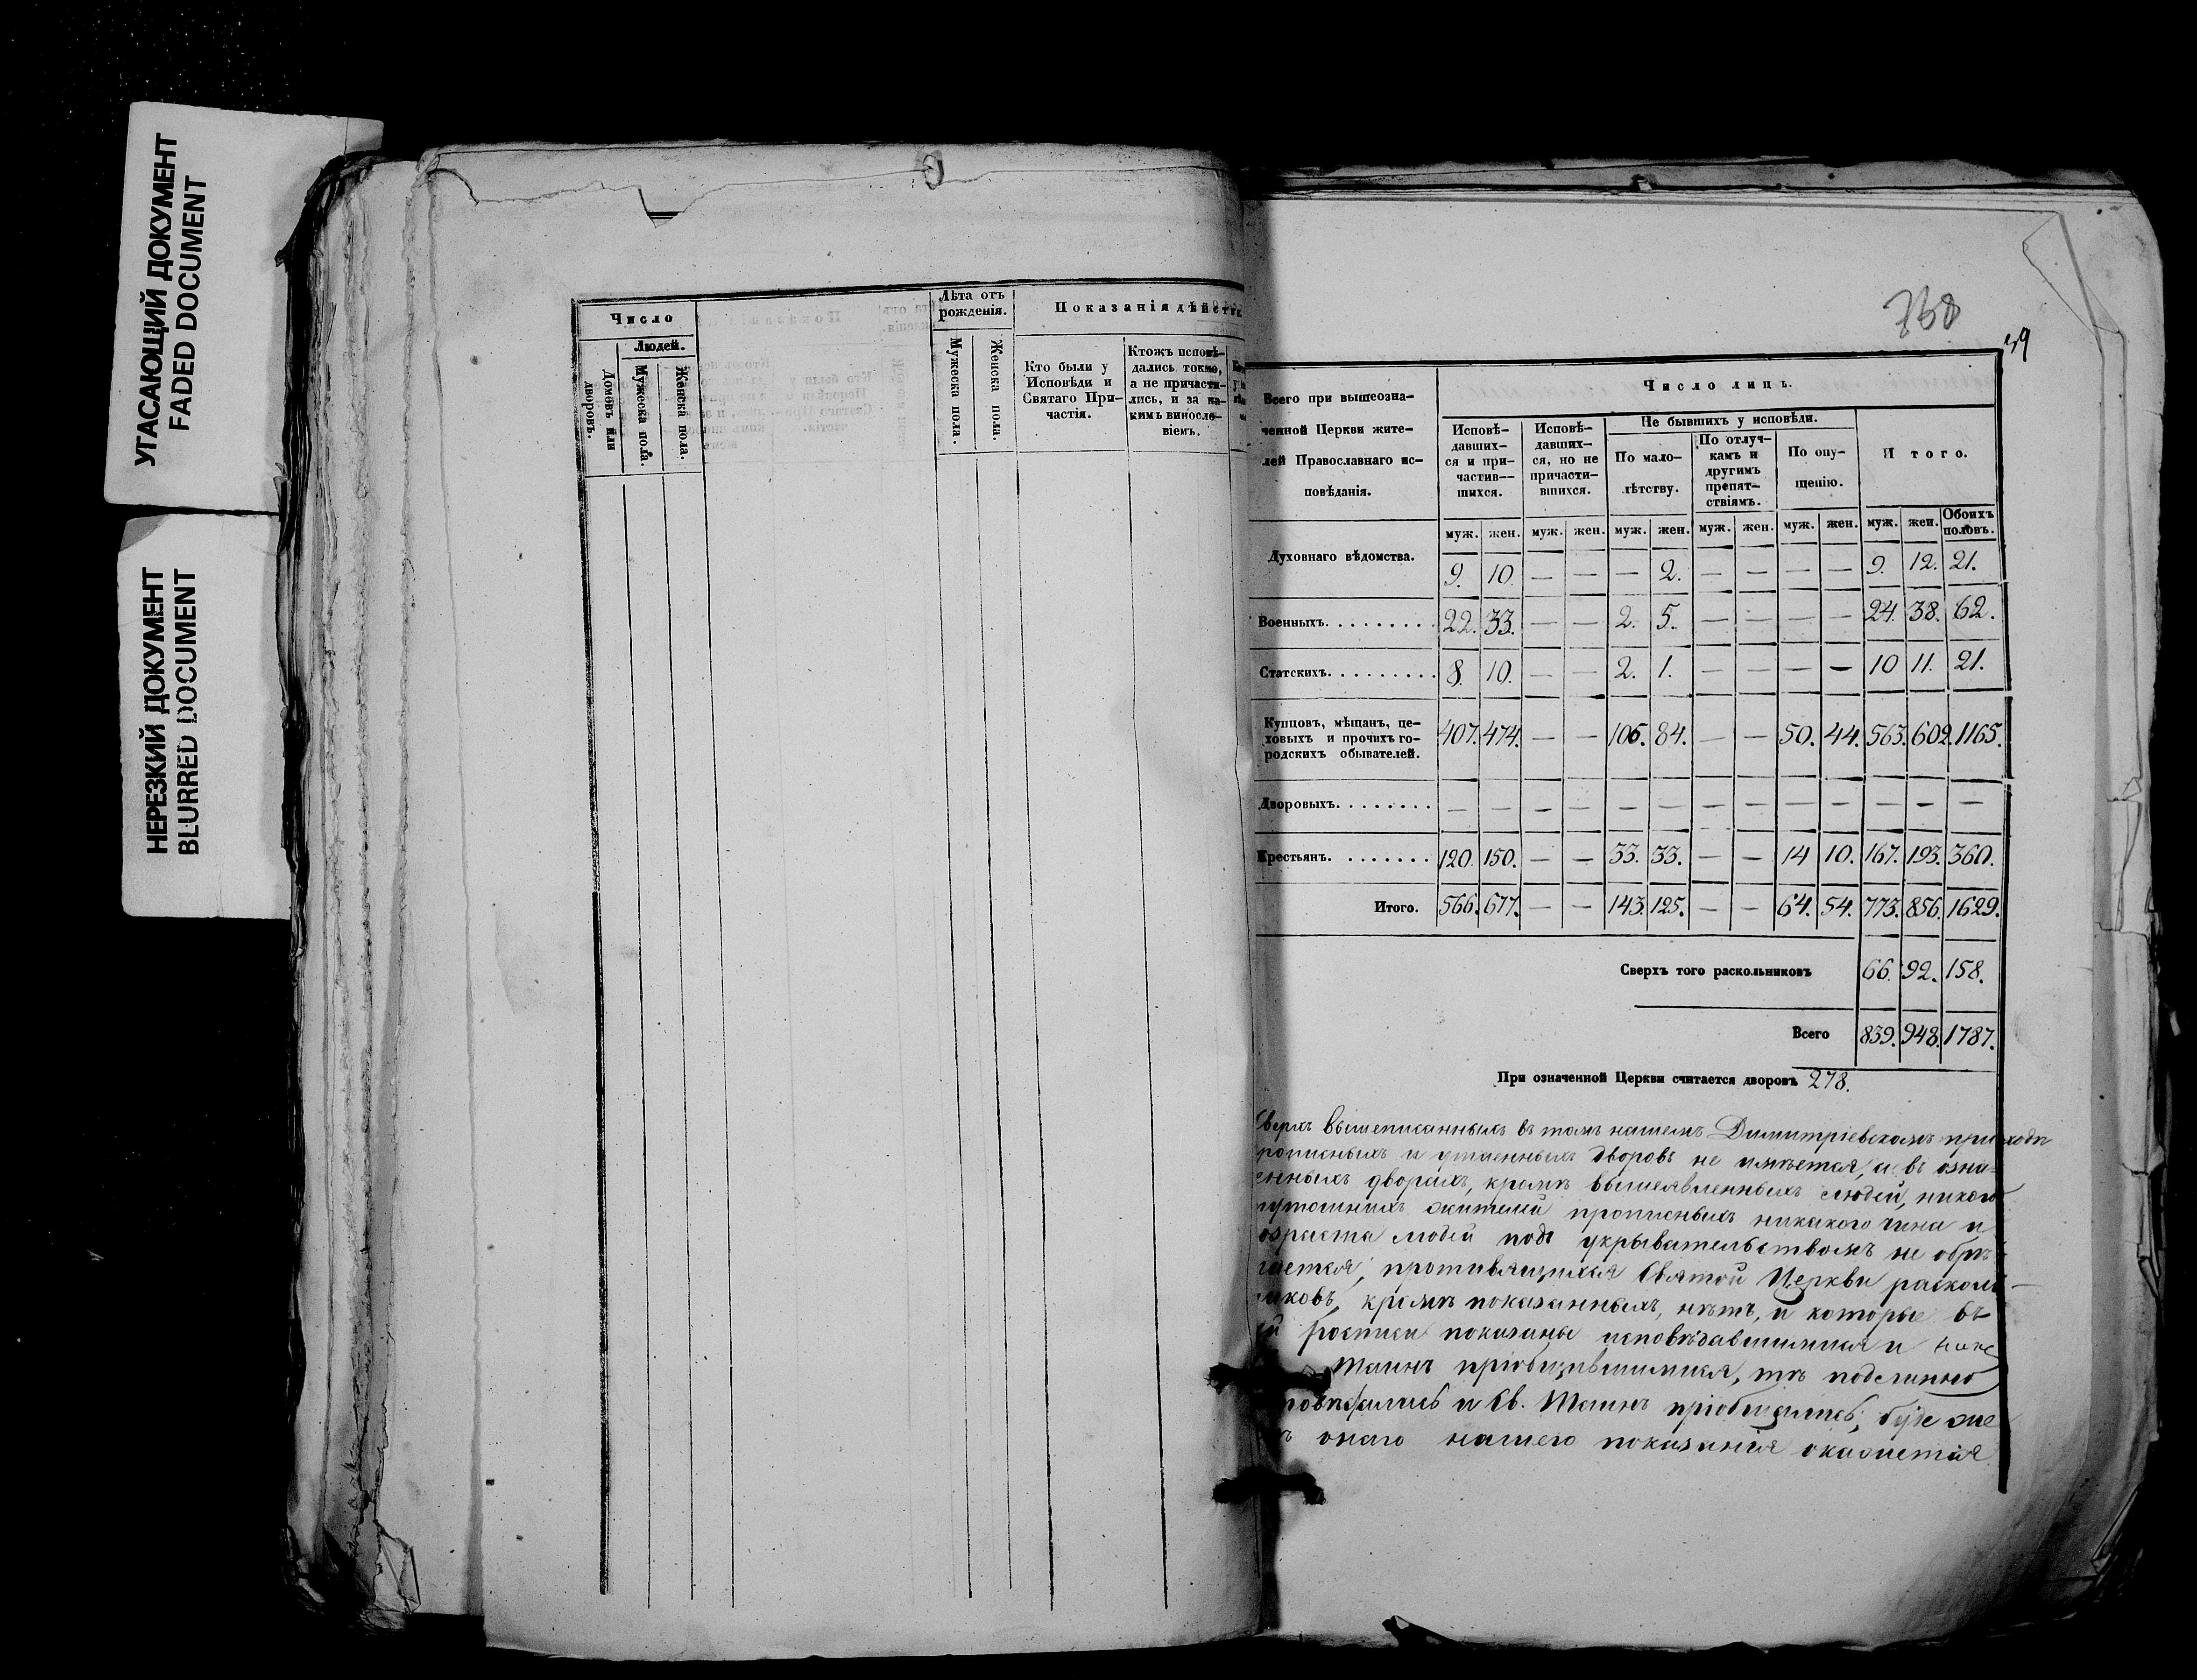 УГАСАЮЩИЙ ДОКУМЕНТ
FADED DOCUMENT
НЕРЕЗКИЙ ДОКУМЕНТ
BLURRED DOCUMENT
Число
Людей.
Домовъ или дворовъ.
Мужеска пола.
Женска пола.
Лѣта отъ рожденія.
Мужеска пола.
Женска пола.
Показанія дѣйств
Кто были у
Исповѣди и
Святаго При-
частія.
Ктожъ исповѣ-
дались токмо,
а не причасти-
лись, и за ка-
кимъ винсло-
віемъ.
39
Всего при вышеозна-
ченной Церкви жите-
лей Православнаго ис-
повѣданія.
Число лицъ.
Исповѣ-
давших-
ся и при-
частив-
шихся.
Исповѣ-
давших-
ся, но не
причасти-
вшихся.
Не бывшихъ у исповѣди.
По мало-
лѣтству.
По отлуч-
камъ и
другимъ
препят-
ствіямъ.
По опу-
щенію.
Итого.
муж. жен. муж. жен. муж. жен. муж. жен. муж. жен. муж. жен. Обоихъ половъ.
Духовнаго вѣдомства. 9. 10. — — — 2. — — — — 9. 12. 21.
Военныхъ......... 22. 33. — — 2. 5. — — — — 24. 38. 62.
Статскихъ......... 8. 10. — — 2. 1. — — — — 10 11. 21.
Купцовъ, мѣщанъ, це-
ховыхъ и прочихъ го-
родскихъ обывателей. 407. 474. — — 106. 84. — — 50. 44. 563. 602. 1165.
Дворовыхъ........ — — — — — — — — — — — — —
Крестьянъ........ 120. 150. — — 33. 33. — — 14 10. 167. 193. 360.
Итого. 566. 677. — — 143. 125. — — 64. 54. 773. 856. 1629.
Сверхъ того раскольниковъ 66. 92. 158.
Всего 839. 948. 1787.
При означенной Церкви считается дворовъ 278.
Сверхъ вышеписанныхъ въ томъ нашемъ Димитріевскомъ приходѣ
прописныхъ и утаенныхъ дворовъ не имѣется, а въ озна-
енныхъ дворахъ, кромѣ вышеявленныхъ людей, никого
жителей прописныхъ никакого чина и
озраста людей подъ укрывательствомъ не обрѣ-
тается, противящихся Святой Церкви расколь-
никовъ, кромѣ показанныхъ, нѣтъ, и которые въ
ей росписи показаны исповѣдавшимися и
Таинъ пріобщившимися, тѣ подлинно
повѣдались и Св. Таинъ пріобщились; буде же
онаго нашего показанія окажется